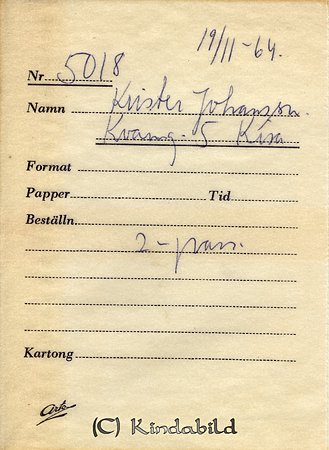 19/11-64.
Nr 5018
Namn Krister Johanson.
Kvarng. 5 Kisa
Format
Papper Tid
Beställn.
2-pass.
Kartong
Ark
(C) Kindabild